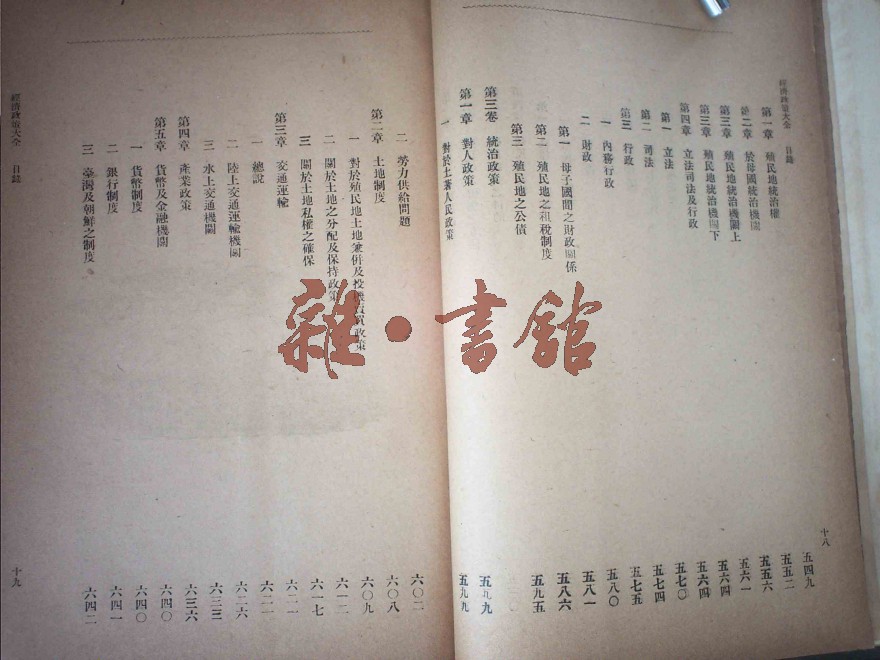 經濟政策大全 目錄
十八
第一章 殖民地統治權 五四九
第二章 於母國統治機關 五五二
第三章 殖民地統治機關上 五五六
第三章 殖民地統治機關下 五六一
第四章 立法司法及行政 五六四
第一 立法 五六四
第二 司法 五七〇
第三 行政 五七四
一 內務行政 五七五
二 財政 五八〇
第一 母子國間之財政關係 五八一
第二 殖民地之租稅制度 五八六
第三 殖民地之公債 五九五
第三卷 統治政策
第一章 對人政策 五九九
一 對於土著人民政策 五九九
二 勞力供給問題 六〇二
第二章 土地制度 六〇八
一 對於殖民地土地兼併及投機政策 六〇九
二 關於土地之分配及保持政策 六一二
三 關於土地私權之確保 六一七
第三章 交通運輸 六二一
一 總說 六二一
二 陸上交通運輸機關 六二六
三 水上交通機關 六三三
第四章 產業政策 六三六
第五章 貨幣及金融機關 六四〇
一 貨幣制度 六四〇
二 銀行制度 六四一
三 臺灣及朝鮮之制度 六四二
經濟政策大全 目錄
十九
雜·書舘